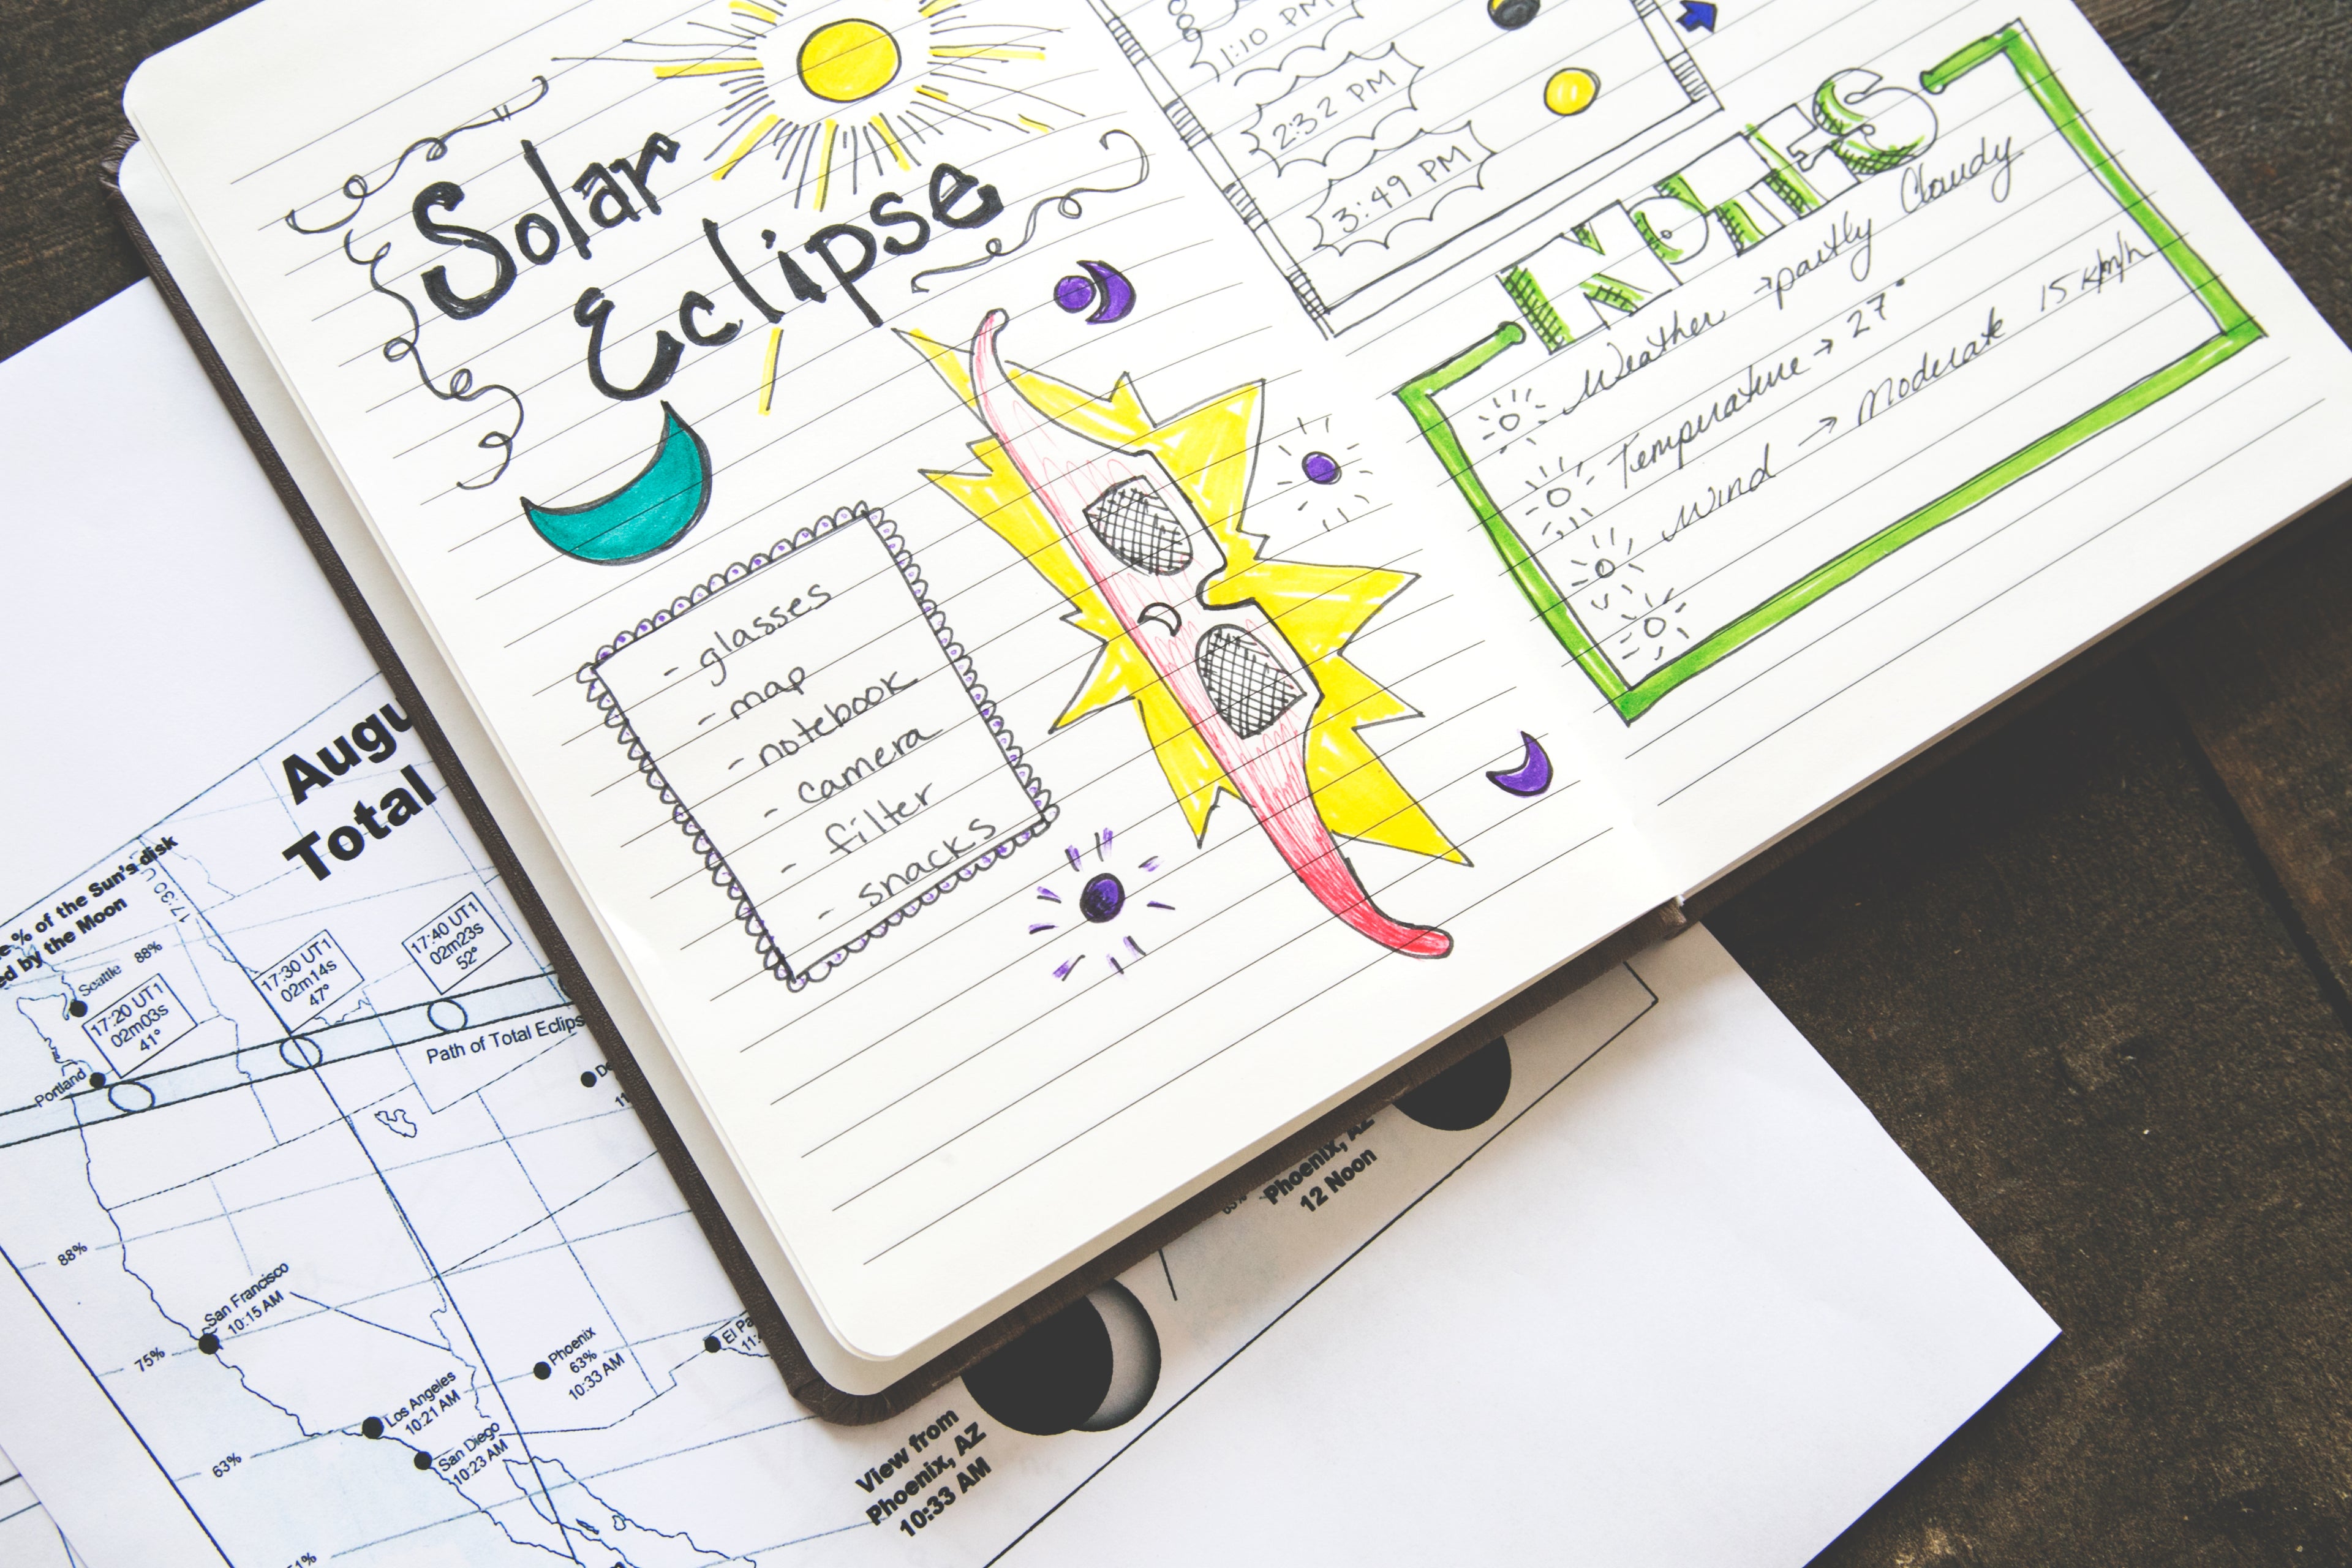 Solar
Eclipse
- glasses
- map
- notebook
- camera
- filter
- snacks
1:10 PM
2:32 PM
3:49 PM
NOTES
Weather → partly Cloudy
Temperature → 27°
Wind → Moderate 15 km/h
Augu
Total
% of the Sun's disk
ed by the Moon
17:30 U
Seattle
88%
17:20 UT1
02m03s
41°
17:30 UT1
02m14s
47°
17:40 UT1
02m23s
52°
Portland
Path of Total Eclips
88%
San Francisco
10:15 AM
75%
Los Angeles
10:21 AM
Phoenix
63%
10:33 AM
El Pa
11:
San Diego
10:23 AM
63%
51%
View from
Phoenix, AZ
10:33 AM
Phoenix, AZ
12 Noon